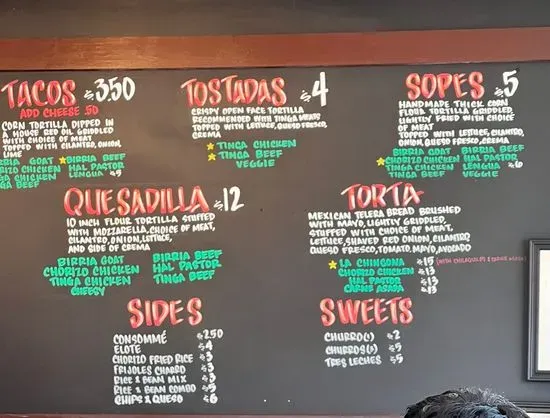 TACOS $3.50
ADD CHEESE .50
CORN TORTILLA DIPPED IN
A HOUSE RED OIL GRIDDLED
WITH CHOICE OF MEAT
TOPPED WITH CILANTRO, ONION,
LIME
BIRRIA GOAT BIRRIA BEEF
CHICKEN HAL PASTOR
CHICKEN LENGUA $5
BEEF
TOSTADAS $4
CRISPY OPEN FACE TORTILLA
RECOMMENDED WITH TINGA MEATS
TOPPED WITH LETTUCE, QUESO FRESCO,
CREMA
TINGA CHICKEN
TINGA BEEF
VEGGIE
SOPES $5
HANDMADE THICK CORN
FLOUR TORTILLA GRIDDLED,
LIGHTLY FRIED WITH CHOICE
OF MEAT
TOPPED WITH LETTUCE, CILANTRO,
ONION, QUESO FRESCO, CREMA
BIRRIA GOAT BIRRIA BEEF
CHORIZO CHICKEN HAL PASTOR
TINGA CHICKEN LENGUA $6
TINGA BEEF VEGGIE
QUESADILLA $12
10 INCH FLOUR TORTILLA STUFFED
WITH MOZZARELLA, CHOICE OF MEAT,
CILANTRO, ONION, LETTUCE,
AND SIDE OF CREMA
BIRRIA GOAT BIRRIA BEEF
CHORIZO CHICKEN HAL PASTOR
TINGA CHICKEN TINGA BEEF
CHEESY
TORTA
MEXICAN TELERA BREAD BRUSHED
WITH MAYO, LIGHTLY GRIDDLED,
STUFFED WITH CHOICE OF MEAT,
LETTUCE, SHAVED RED ONION, CILANTRO
QUESO FRESCO, TOMATO, MAYO, AVOCADO
LA CHINGONA $15 (WITH CHILAQUILES
CHORIZO CHICKEN $13
HAL PASTOR $13
CARNE ASADA $13
SIDES
CONSOMMÉ $2.50
ELOTE $4
CHORIZO FRIED RICE $3
FRIJOLES CHARRO $3
RICE & BEAN MIX $3
RICE & BEAN COMBO $5
CHIPS & QUESO $6
SWEETS
CHURRO(1) $2
CHURROS(3) $5
TRES LECHES $5